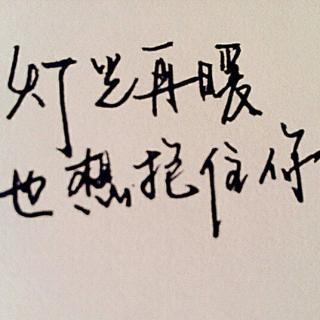 灯光再暖
也想抱住你